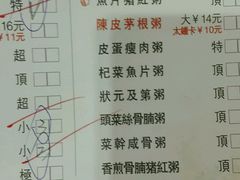 特 魚片豬紅粥
16元 陳皮茅根粥 大￥14元
￥11元 太鐘卡￥10元
超 皮蛋瘦肉粥 頂
超 杞菜魚片粥 頂
頂 狀元及第粥 超
小 3 頭菜絲骨腩粥
小 菜幹咸骨粥 頂
極 香煎骨腩豬紅粥